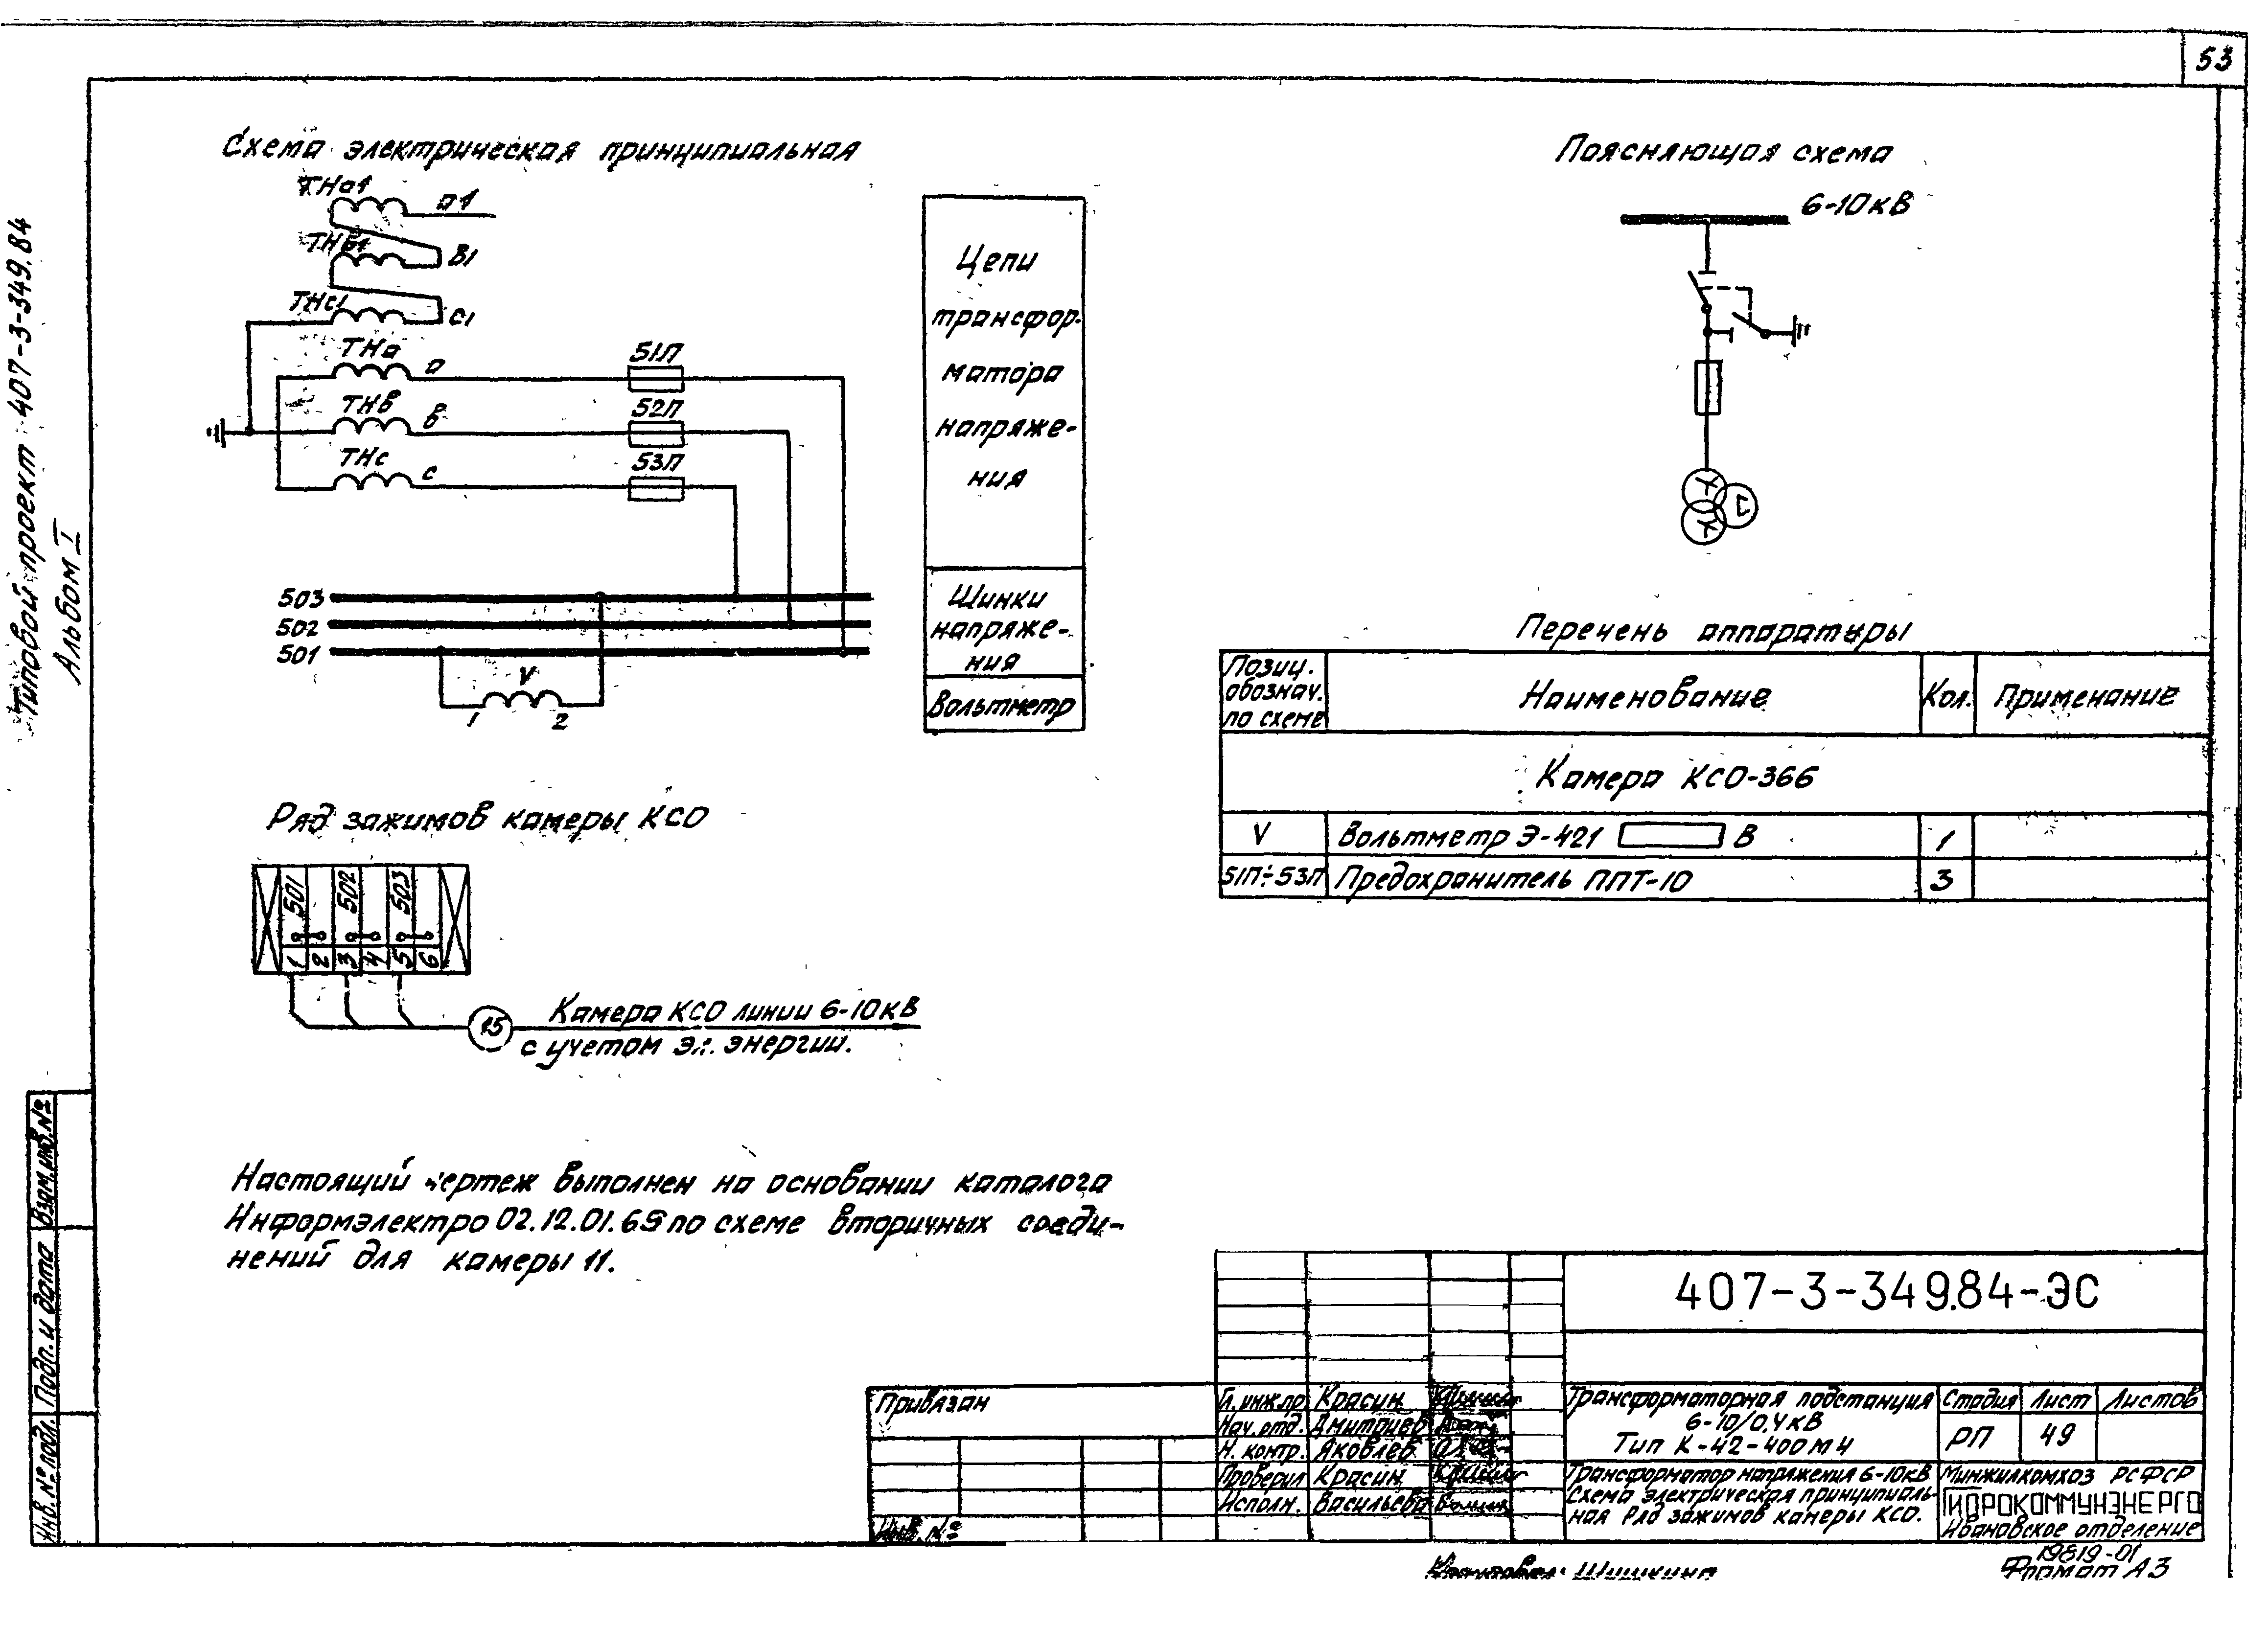 53
Типовой проект 407-3-349.84
Альбом I
Схема электрическая принципиальная
ТНа1
а1
ТНб1
В1
ТНс1
С1
ТНа
а
51П
ТНв
в
52П
ТНс
с
53П
503
502
501
V
1
2
Цепи
трансфор-
матора
напряже-
ния
Шинки
напряже-
ния
Вольтметр
Поясняющая схема
6-10кВ
Перечень аппаратуры
Позиц.
обознач.
по схеме
Наименование
Кол.
Примечание
Камера КСО-366
V
Вольтметр Э-421
В
1
51П÷53П
Предохранитель ППТ-10
3
Ряд зажимов камеры КСО
501
502
503
1
2
3
4
5
6
Камера КСО линии 6-10кВ
с учетом эл. энергии.
Настоящий чертеж выполнен на основании каталога
Информэлектро 02.12.01.65 по схеме вторичных соеди-
нений для камеры 11.
Взам.инв.№
Подп. и дата
Инв.№подл.
Привязан
Инв.№
407-3-349.84-ЭС
Гл.инж.пр.
Красин
Нач.отд.
Дмитриев
Н. контр.
Яковлев
Проверил
Красин
Исполн.
Васильева
Трансформаторная подстанция
6-10/0,4кВ
Тип К-42-400М4
Стадия
Лист
Листов
РП
49
Трансформатор напряжения 6-10кВ
Схема электрическая принципиаль-
ная Ряд зажимов камеры КСО.
Минжилкомхоз РСФСР
ГИПРОКОММУНЭНЕРГО
Ивановское отделение
Копировал: Шишкина
19819-01
Формат А3